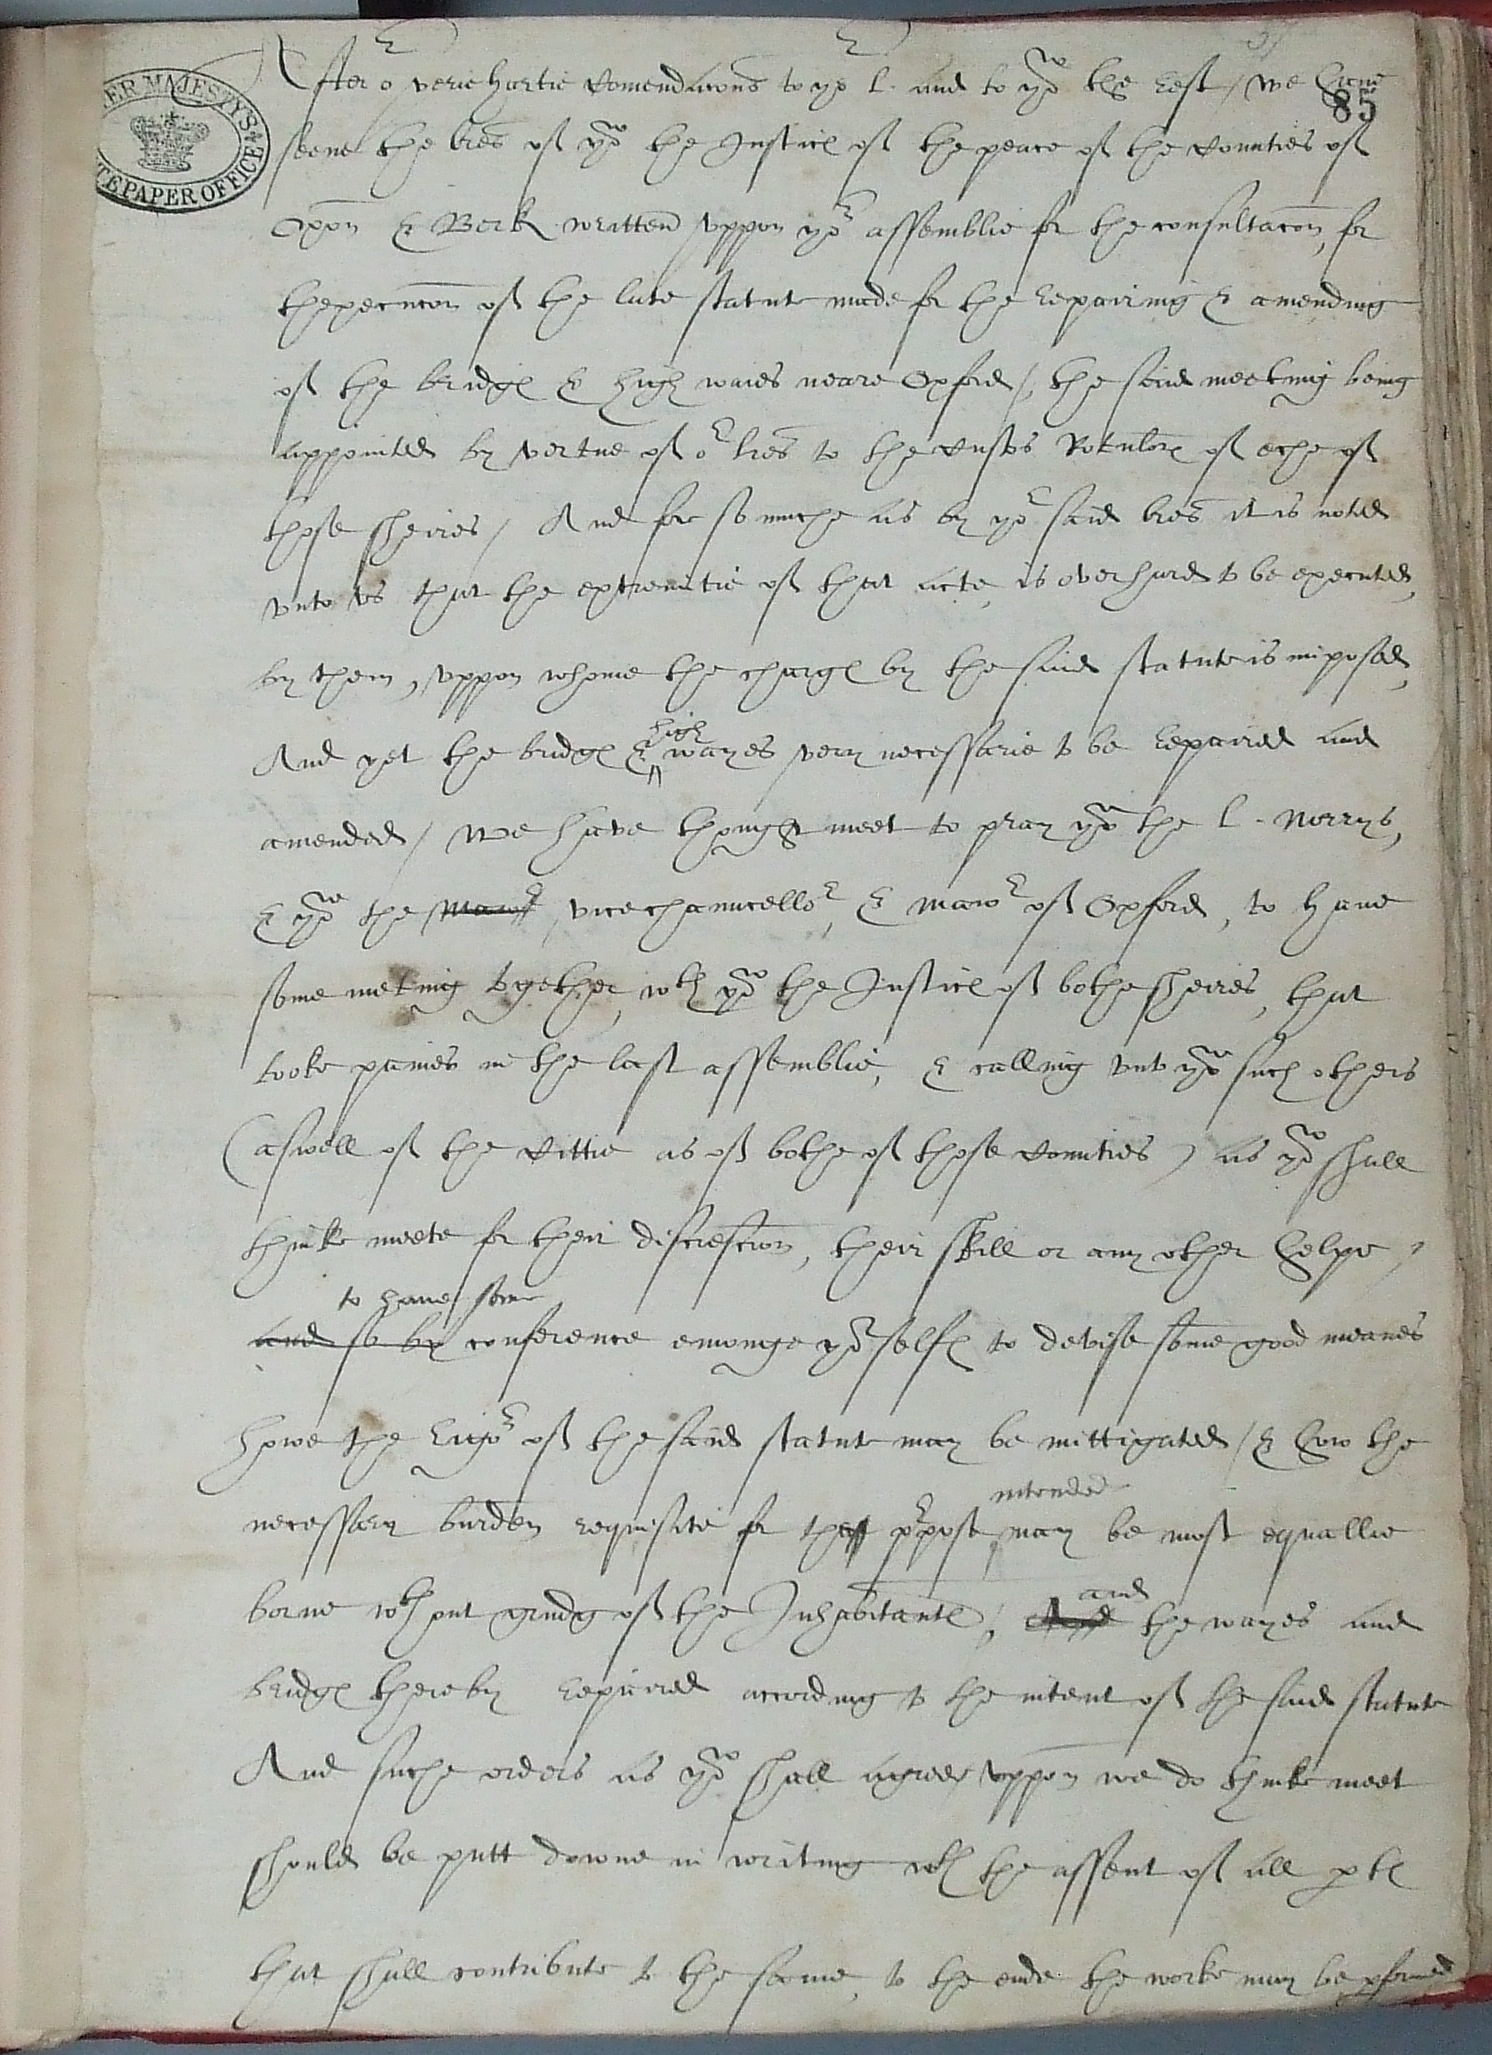 85
HER MAJESTY'S
STATE PAPER OFFICE
After or verie hartie Comendacons to yor L. and to you the rest / We have
seene the lres of you the Justices of the peace of the Counties of
Oxon & Berk written vppon yor assemblie for the consultacon, for
thexecucon of the late statute made for the repairing & amending
of the bridges & high waies neare Oxford / the said meeting being
appointed by vertue of or lres to the Custos Rotulor of eche of
those sheires / And for so muche as by yor said lres it is noted
vnto vs that the extremitie of that acte, is over hard to be executed,
by them, vppon whome the charges by the said statute is imposed,
high
And yet the bridges & wayes very necessarie to be repaired and
amended / We have thought meet to pray you the L. Norrys,
& you the Maior vicechauncellor, & Maior of Oxford, to have
some meeting together, wth you the Justices of bothe sheires, that
tooke paines in the last assemblie, & calling vnto you such others
(aswell of the Cittie as of bothe of those Counties) as you shall
thinke meete for their discrestion, their skill or any other helpe,
to have some
and so by conference emonge yor selfes to devise some good meanes
howe the rigor of the said statute may be mittigated / & how the
intended
necessary burden requisite for that purpose, may be most equallie
and
borne wthout grudg of the Inhabitantes, And the wayes and
bridges thereby repaired according to the intent of the said statute
And suche orders as you shall agree vppon we do thinke meet
should be putt downe in writing wth the assent of all ptes
that shall contribute to the same, to the ende the worke may be pformed